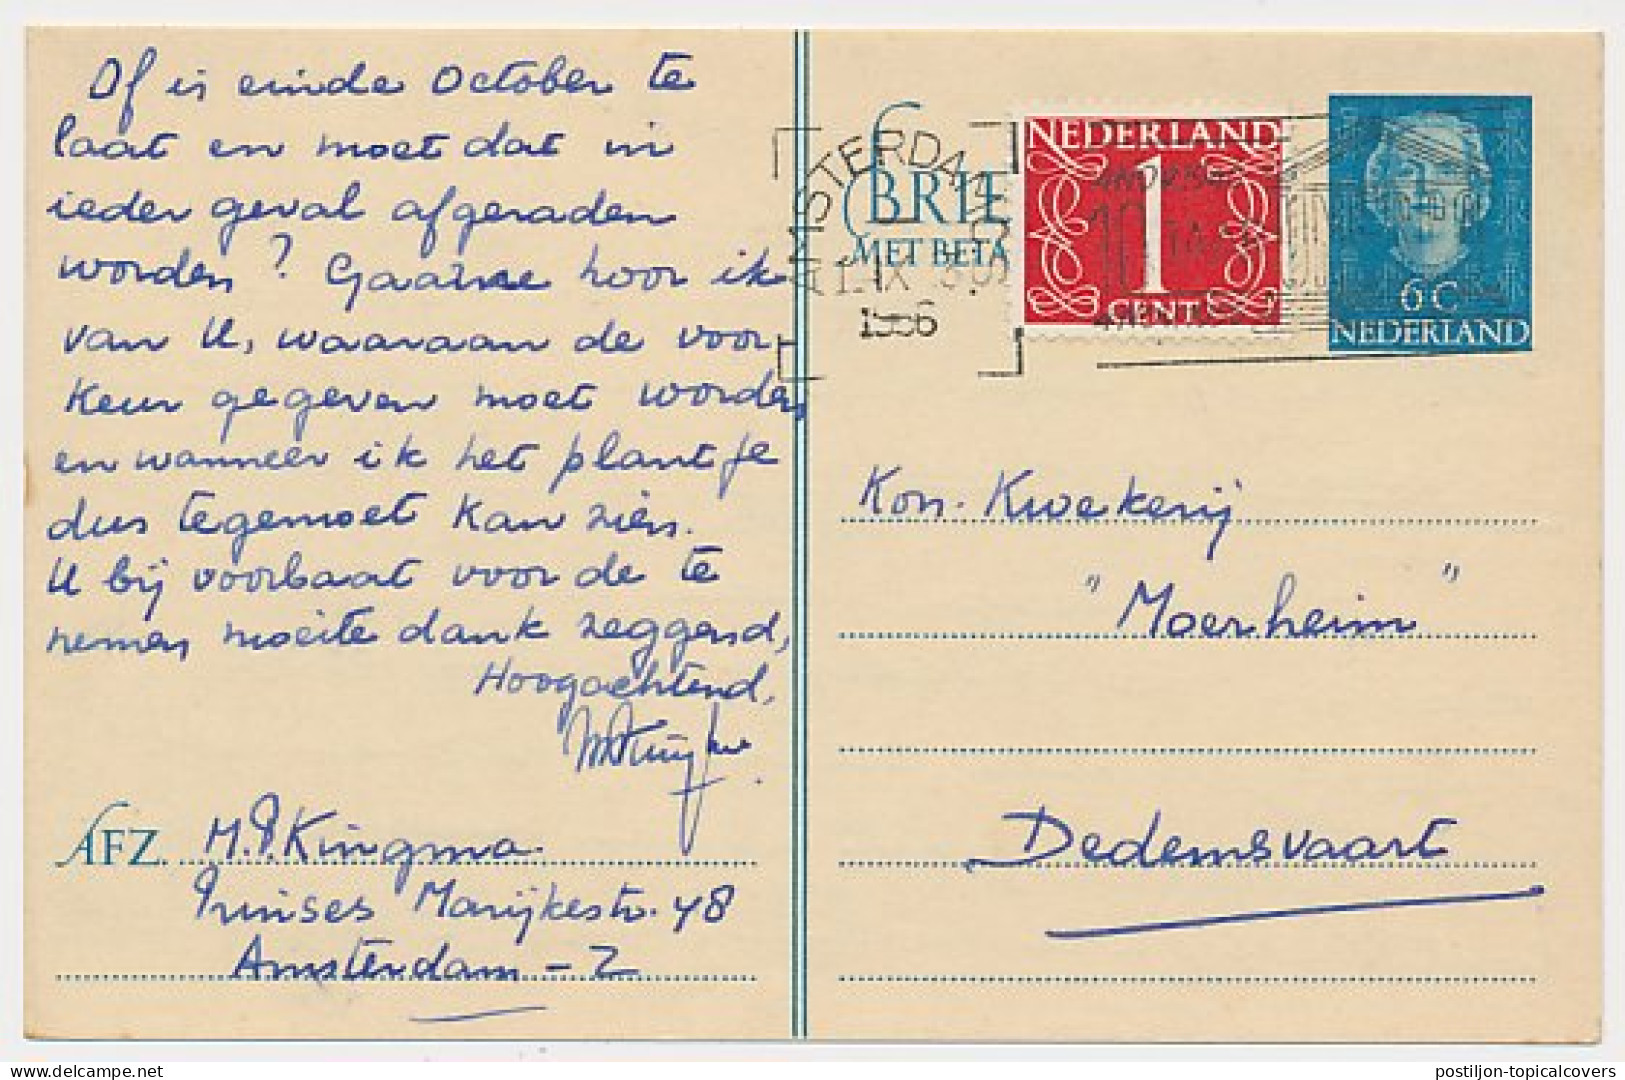 Of is einde October te
laat en moet dat in
ieder geval afgeraden
worden? Gaarne hoor ik
van U, waaraan de voor-
keur gegeven moet worden
en wanneer ik het plantje
dus tegemoet kan zien.
U bij voorbaat voor de te
nemen moeite dank zeggend,
Hoogachtend,
AFZ. M.P. Kingma.
Prinses Marijkestr. 48
Amsterdam - Z
BRIE
MET BETA
AMSTERDAM
1956
NEDERLAND
1
CENT
6 C
NEDERLAND
Kon. Kwekerij
"Moerheim"
Dedemsvaart
postiljon-topicalcovers